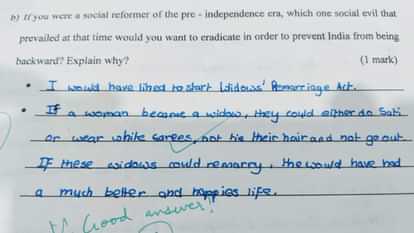 b) If you were a social reformer of the pre - independence era, which one social evil that
prevailed at that time would you want to eradicate in order to prevent India from being
backward? Explain why? (1 mark)
• I would have liked to start Widows' Remarriage Act.
• If a woman became a widow, they could either do Sati
or wear white sarees, not tie their hair and not go out.
If these widows could remarry, the would have had
a much better and happies life.
Good answer!